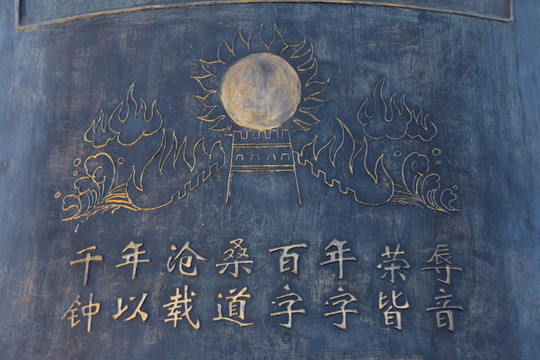 千年沧桑百年荣辱
钟以载道字字皆音